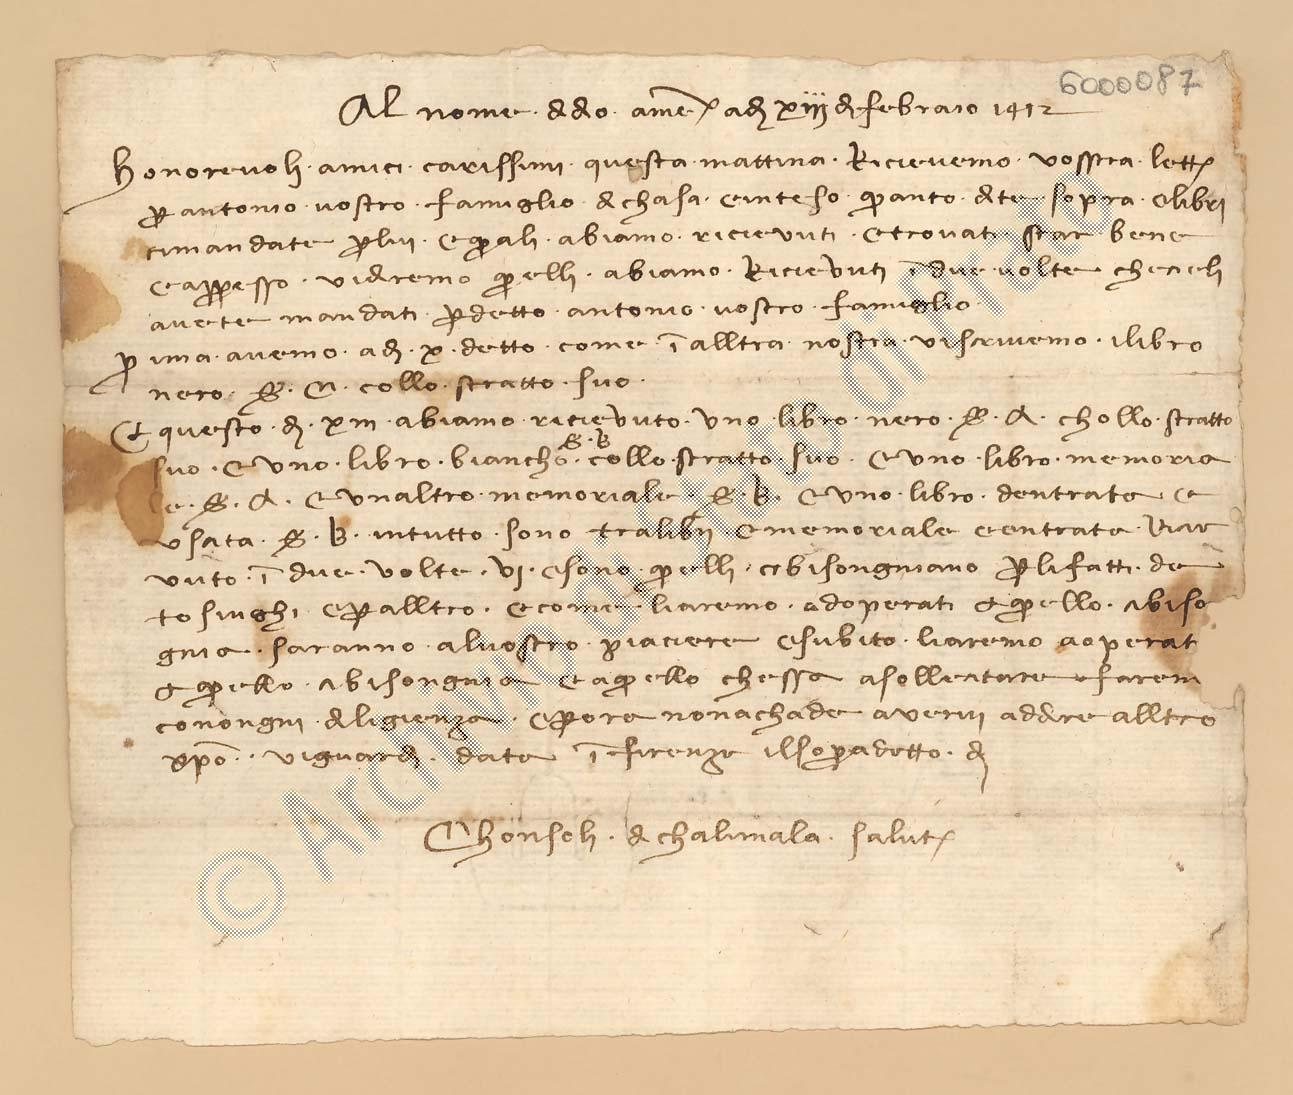 6000087
Al nome ddio ame adi xiii di febraio 1412
Honorevoli amici carissimi questa mattina Ricievemo vosstra lett
p antonio vostro famiglio di chasa e inteso quanto dite sopra e libri
cimandate plui e quali abiamo ricievuti e trovati star bene
e appresso vidiremo quelli abiamo Ricievuti i due volte checieli
avete mandati pdetto antonio vostro famiglio
p ima avemo adi x detto come i alltra nostra viscrivemo ilibro
nero S. C. collo stratto suo
Et questo di xiii abiamo ricievuto uno libro nero S. A. chollo stratto
S. B
suo e uno libro biancho collo stratto suo e uno libro memoria
le S. A. e unaltro memoriale S. B. e uno libro dentrata e
usata S. B. intutto sono tralibri e memoriale e entrata Riae
vuto i due volte VI e sono quelli cibisongniano plifatti de
to siughi e p alltro e come liaremo adoperati quello abiso
gnia saranno alvostro piaciere e subito liaremo aoperat
quello abisongnia e a quello chessa a sollecitare farem
conongni diligienza e p ora nonachade avervi addire alltro
xpo viguardi data i firenze ilsopradetto di
Chonsoli di chalimala salut
© Archivio di Stato di Prato